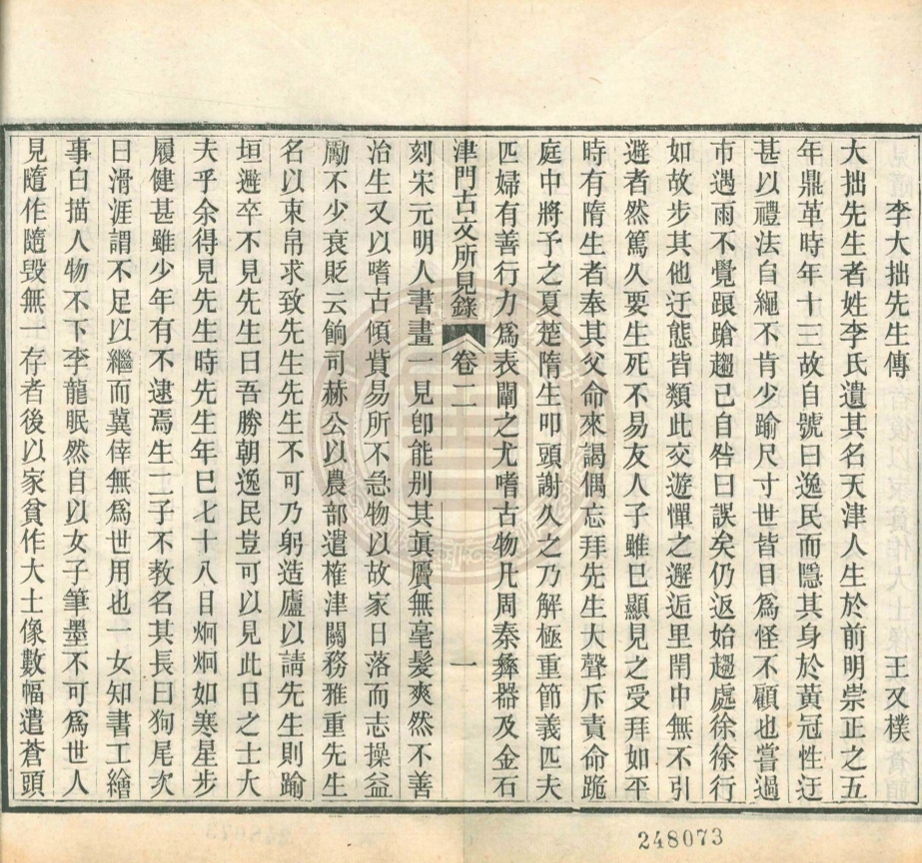 李大拙先生傳　王又樸
大拙先生者姓李氏遺其名天津人生於前明崇正之五
年鼎革時年十三故自號曰逸民而隱其身於黃冠性迂
甚以禮法自繩不肯少踰尺寸世皆目爲怪不顧也嘗過
市遇雨不覺踉蹌趨已自咎曰誤矣仍返始趨處徐徐行
如故步其他迂態皆類此交遊憚之邂逅里閈中無不引
避者然篤久要生死不易友人子雖巳顯見之受拜如平
時有隋生者奉其父命來謁偶忘拜先生大聲斥責命跪
庭中將予之夏楚隋生叩頭謝久之乃解極重節義匹夫
匹婦有善行力爲表闡之尤嗜古物凡周秦彝器及金石
津門古文所見錄　卷二　一
刻宋元明人書畫一見卽能别其眞贋無毫髮爽然不善
治生又以嗜古傾貲易所不急物以故家日落而志操益
勵不少衰貶云餉司赫公以農部遣榷津關務雅重先生
名以束帛求致先生先生不可乃躬造廬以請先生則踰
垣避卒不見先生曰吾勝朝逸民豈可以見此日之士大
夫乎余得見先生時先生年巳七十八目炯炯如寒星步
履健甚雖少年有不逮焉生二子不教名其長曰狗尾次
曰滑涯謂不足以繼而冀倖無爲世用也一女知書工繪
事白描人物不下李龍眠然自以女子筆墨不可爲世人
見隨作隨毀無一存者後以家貧作大士像數幅遣蒼頭
248073